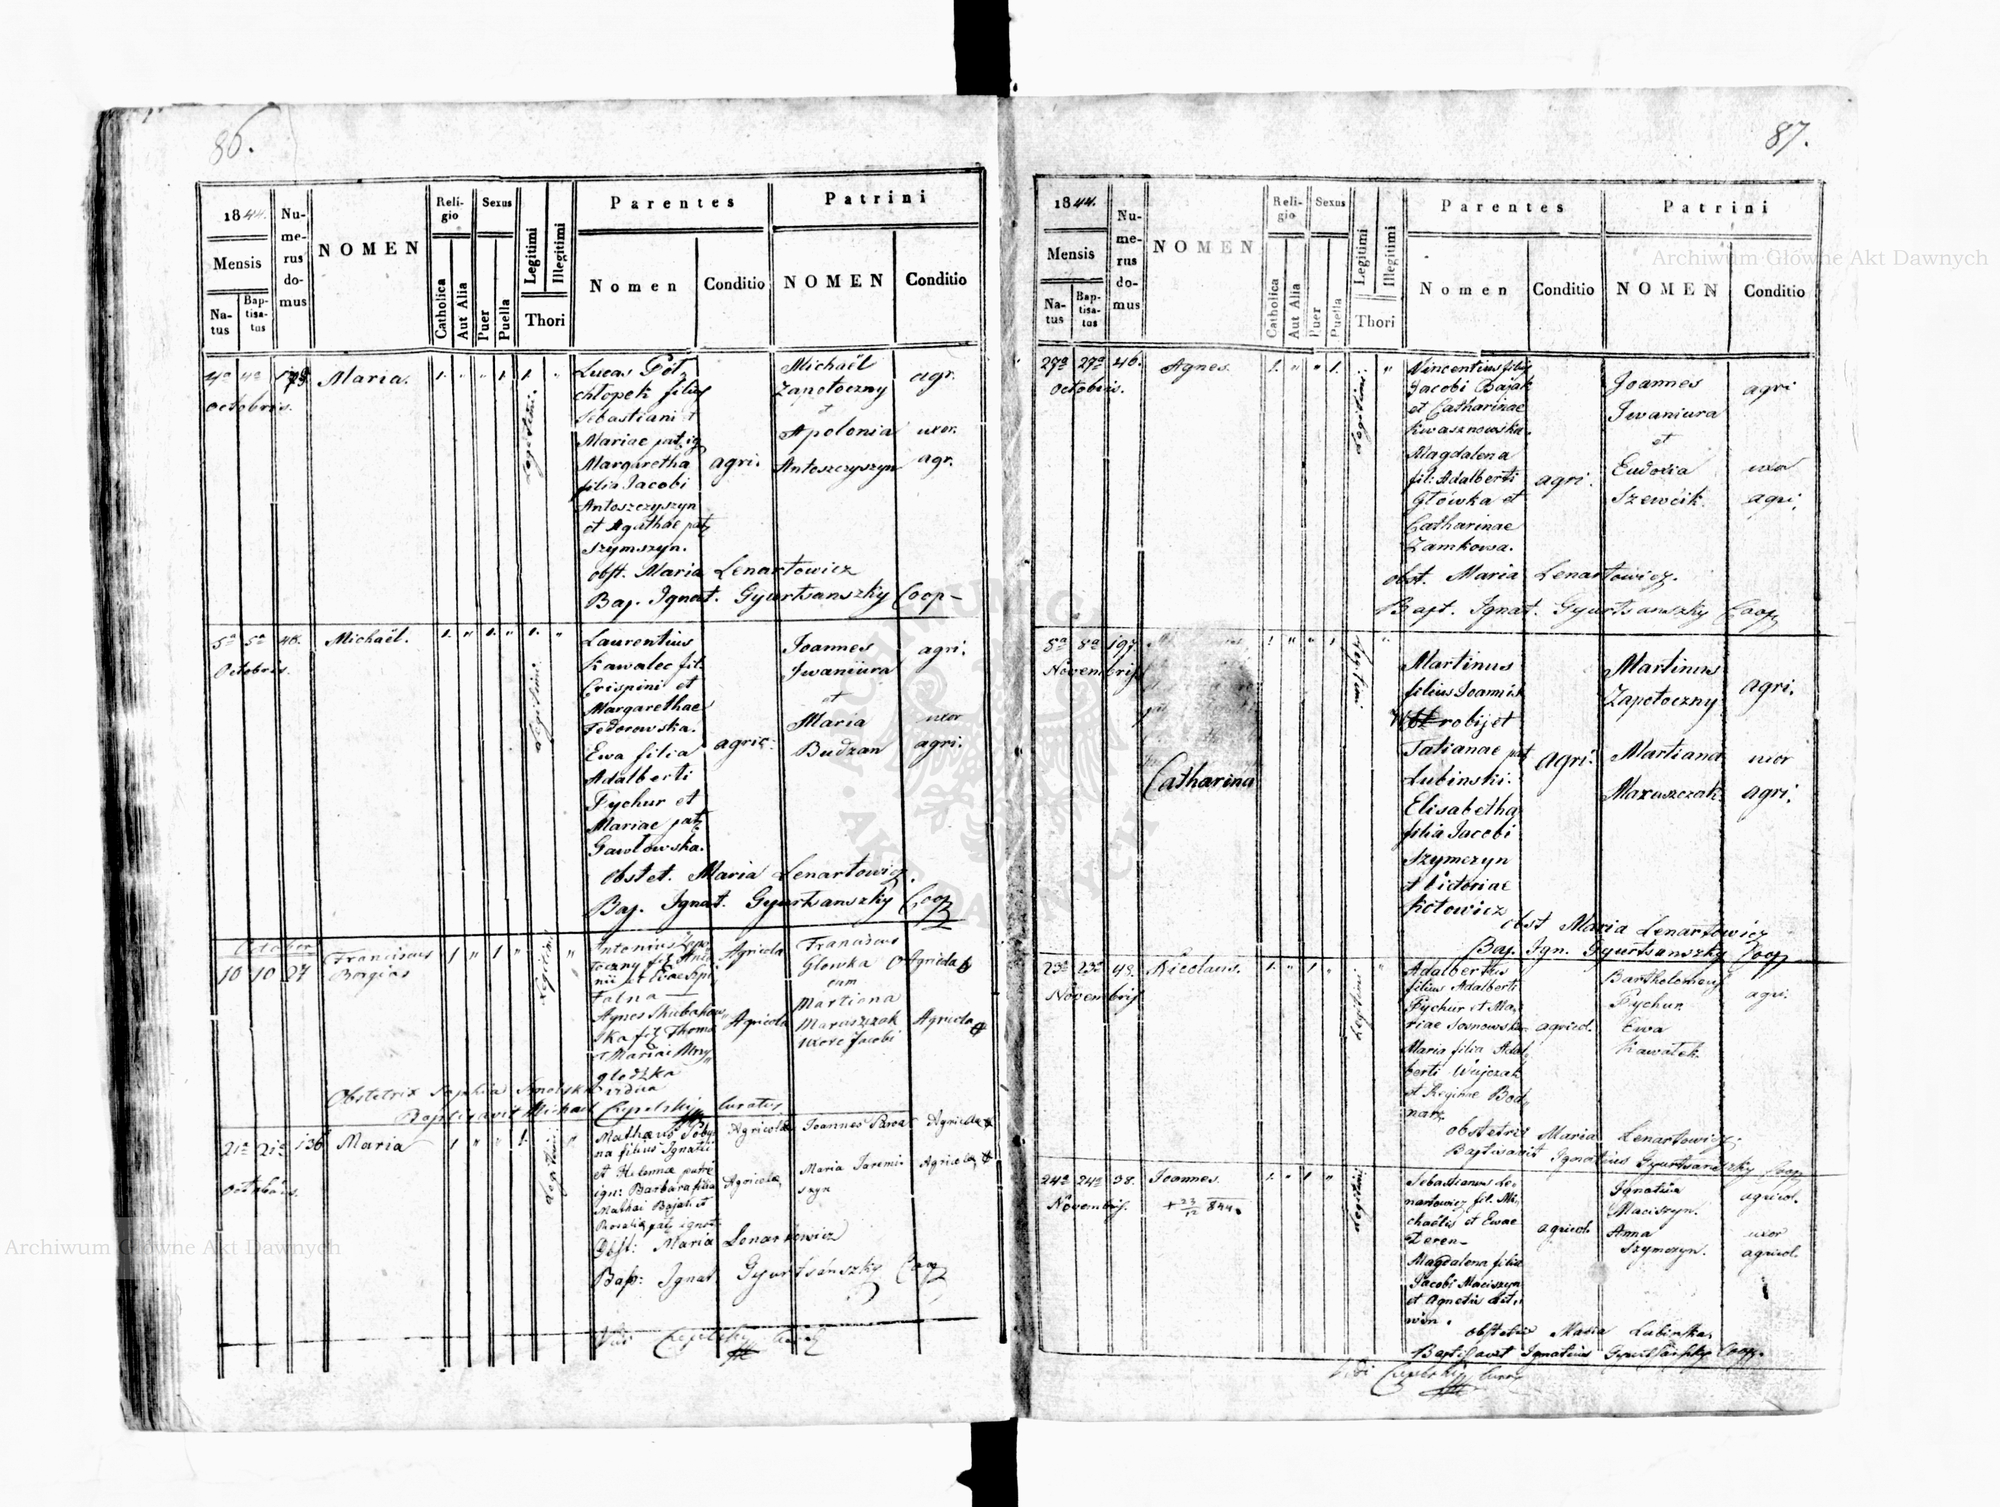 86.
1844.
Mensis
Natus
Baptisatus
Numerus domus
NOMEN
Religio
Catholica
Aut Alia
Sexus
Puer
Puella
Legitimi
Illegitimi
Thori
Parentes
Nomen
Conditio
Patrini
NOMEN
Conditio
4a 4a
Octobris.
Maria.
1. " " 1. 1. "
Legitimi.
Lucas Pół,
chłopek filius
Sebastiani et
Mariae pat. ig
Margaretha
filia Jacobi
Antoszczyszyn
et Agathae pat,
Szymszyn.
agri.
Michaël
Zapotoczny
et
Apolonia
Antoszczyszyn
agr.
uxor.
agr.
obst. Maria Lenartowicz
Bap. Ignat. Gyurtsanszky Coop
5a 5a 48.
Octobris.
Michaël.
1. " 1. " 1. "
Legitimi.
Laurentius
Kawalec fil.
Crispini et
Margarethae
Fedorowska.
Ewa filia
Adalberti
Pychur et
Mariae pat,
Gawłowska.
agric.
Joannes
Iwaniura
et
Maria
Budzan
agri.
uxor
agri.
Obstet. Maria Lenartowicz.
Bap. Ignat. Gyurtsanszky Coop
October
10 10 27
Franciscus
Borgias
1 " 1 "
Legitimi
Antonius Zapo
toczny fil. Anto
nii et Evae
Agnes Skubakow
ska fil. Thoma
Agricola
Agricola
Franciscus
Glowka
cum
Martiana
Maruszczak
uxore Jacobi
Agricola
Agricola
Obstetrix Sophia Smolska vidua
Baptisavit Michael Czepelsky Curatus
21a 21a 136
Octobris.
Maria
1 " " 1.
Legitimi
Mathaus
na filius Ignatii
et Helenna patri
ign: Barbara filia
Mathai Bajak et
Rosalia pat, ignot
Agricola
Agricola
Joannes
Maria Jaremi
szyn
Agricola
Agricola
Obst: Maria Lenartowicz
Bap: Ignat. Gyurtsánszky Coop
Vidi Czepelsky Curat
87.
1844.
Mensis
Natus
Baptisatus
Numerus domus
NOMEN
Religio
Catholica
Aut Alia
Sexus
Puer
Puella
Legitimi
Illegitimi
Thori
Parentes
Nomen
Conditio
Patrini
NOMEN
Conditio
27a 27a 46.
Octobris.
Agnes.
1. " " 1. "
Legitimi.
Vincentius filius
Jacobi Bajak
et Catharinae
Kwasznowska.
Magdalena
fil: Adalberti
Główka et
Catharinae
Zamkowa.
agri.
Joannes
Iwaniura
et
Eudoxia
Szewcik.
agri
uxor
agri.
obst. Maria Lenartowicz.
Bapt. Ignat. Gyurtsanszky Coop
5a 8a 197.
Novembris
Catharina
Legitimi
Martinus
filius Joannis
Tatianae pat
Lubinski.
Elisabetha
filia Jacobi
Szymczyn
et Victoriae
Kotowicz
agri.
Martinus
Zapotoczny
Martiana
Maruszczak
agri.
uxor
agri.
obst Maria Lenartowicz
Bap. Ign. Gyurtsanszky Coop
23a 23a 48.
Novembris
Nicolaus.
1. " 1 "
Legitimi
Adalbertus
filius Adalberti
Pychur et Ma,
riae Sosnowska
Maria filia Adal,
berti Wujczak
et Reginae Bod,
nar.
agricol.
Bartholomeus
Pychur
Ewa
Kawalek.
agri.
obstetrix Maria Lenartowicz.
Baptisavit Ignatius Gyurtsanszky Coop
24a 24a 38.
Novembris.
Joannes.
+ 23/12 844.
1. " 1 "
Legitimi
Sebastianus Le-
nartowicz fil. Mi,
chaëlis et Ewae
Deren-
Magdalena filia
Jacobi Maciszyn
et Agnetis Lit,
win.
agricol.
Ignatius
Maciszyn.
Anna
Szymczyn.
agricol.
uxor
agricol.
obstetrix Maria Lubinska.
Baptisavit Ignatius Gyurtsanszky Coop.
Vidi Czepelsky Curat
Archiwum Główne Akt Dawnych
Archiwum Główne Akt Dawnych
ARCHIWUM GŁÓWNE · AKT DAWNYCH ·